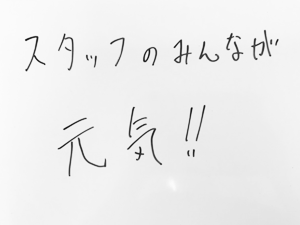 スタッフのみんなが
元気!!